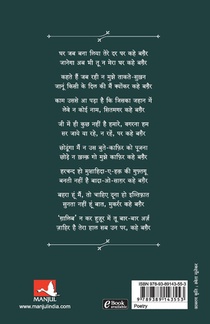 घर जब बना लिया तेरे दर पर कहे बग़ैर
जानेगा अब भी तू न मेरा घर कहे बग़ैर
कहते हैं जब रही न मुझे ताक़ते-सुख़न
जानूं किसी के दिल की मैं क्योंकर कहे बग़ैर
काम उससे आ पड़ा है कि जिसका जहान में
लेवे न कोई नाम, सितमगर कहे बग़ैर
जी में ही कुछ नहीं है हमारे, वगरना हम
सर जाये या रहे, न रहें, पर कहे बग़ैर
छोडूंगा मैं न उस बुते-काफ़िर को पूजना
छोड़े न ख़ल्क़ गो मुझे काफ़िर कहे बग़ैर
हरचन्द हो मुशाहिदा-ए-हक़ की गुफ़्तगू
बनती नहीं है बादा-ओ-साग़र कहे बग़ैर
बहरा हूं मैं, तो चाहिए दूना हो इल्तिफ़ात
सुनता नहीं हूं बात, मुकर्रर कहे बग़ैर
'ग़ालिब' न कर हुज़ूर में तू बार-बार अर्ज़
ज़ाहिर है तेरा हाल सब उन पर, कहे बग़ैर
MANJUL
www.manjulindia.com
eBook available
ISBN 978-93-89143-55-3
9 789389 143553
Poetry